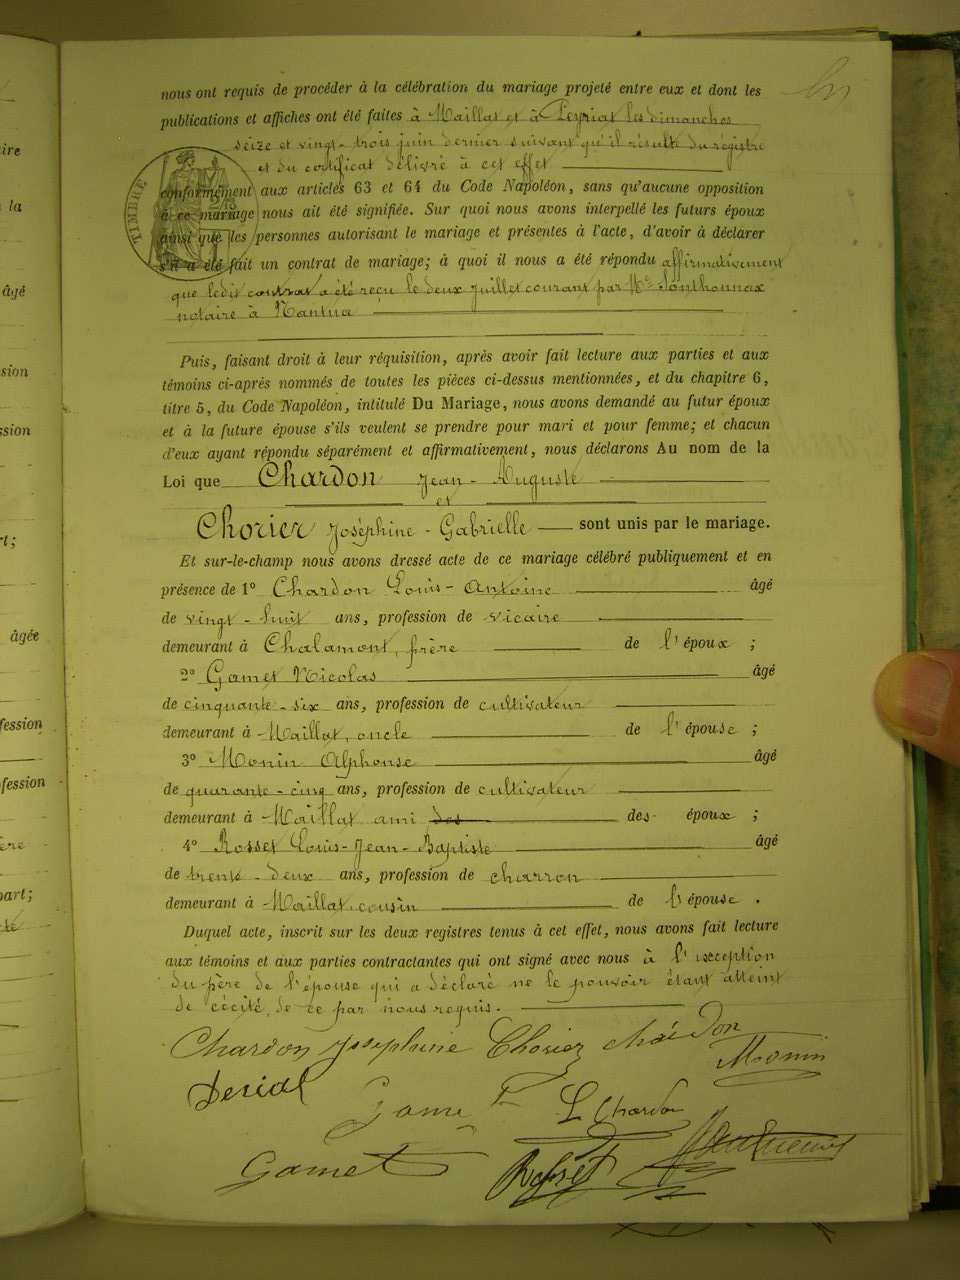 ire
la
âgé
sion
ssion
rt;
âgée
fession
ofession
part;
nous ont requis de procéder à la célébration du mariage projeté entre eux et dont les
publications et affiches ont été faites à Maillat et à Peyriat les dimanches
seize et vingt-trois juin dernier suivant qu'il résulte du régistre
et du certificat délivré à cet effet
TIMBRE
conformément aux articles 63 et 64 du Code Napoléon, sans qu'aucune opposition
à ce mariage nous ait été signifiée. Sur quoi nous avons interpellé les futurs époux
ainsi que les personnes autorisant le mariage et présentes à l'acte, d'avoir à déclarer
s'il a été fait un contrat de mariage; à quoi il nous a été répondu affirmativement
que ledit contrat a été reçu le deux Juillet courant par Me Sonthonnax
notaire à Nantua
Puis, faisant droit à leur réquisition, après avoir fait lecture aux parties et aux
témoins ci-après nommés de toutes les pièces ci-dessus mentionnées, et du chapitre 6,
titre 5, du Code Napoléon, intitulé Du Mariage, nous avons demandé au futur époux
et à la future épouse s'ils veulent se prendre pour mari et pour femme; et chacun
d'eux ayant répondu séparément et affirmativement, nous déclarons Au nom de la
Loi que Chardon Jean-Auguste
et
Chorier Joséphine-Gabrielle sont unis par le mariage.
Et sur-le-champ nous avons dressé acte de ce mariage célébré publiquement et en
présence de 1° Chardon Louis-Antoine âgé
de vingt-huit ans, profession de vicaire
demeurant à Chalamont, frère de l'époux ;
2° Gamet Nicolas âgé
de cinquante-six ans, profession de cultivateur
demeurant à Maillat, oncle de l'épouse ;
3° Monin Alphonse âgé
de quarante-cinq ans, profession de cultivateur
demeurant à Maillat ami des des époux ;
4° Rosset Louis-Jean-Baptiste âgé
de trente-deux ans, profession de charron
demeurant à Maillat, cousin de l'épouse .
Duquel acte, inscrit sur les deux registres tenus à cet effet, nous avons fait lecture
aux témoins et aux parties contractantes qui ont signé avec nous à l'exception
du père de l'épouse qui a déclaré ne le pouvoir étant atteint
de cécité, de ce par nous requis.
Chardon Josephine Chorier Chardon
Monnin
Gamet L Chardon
Gamet Rosset